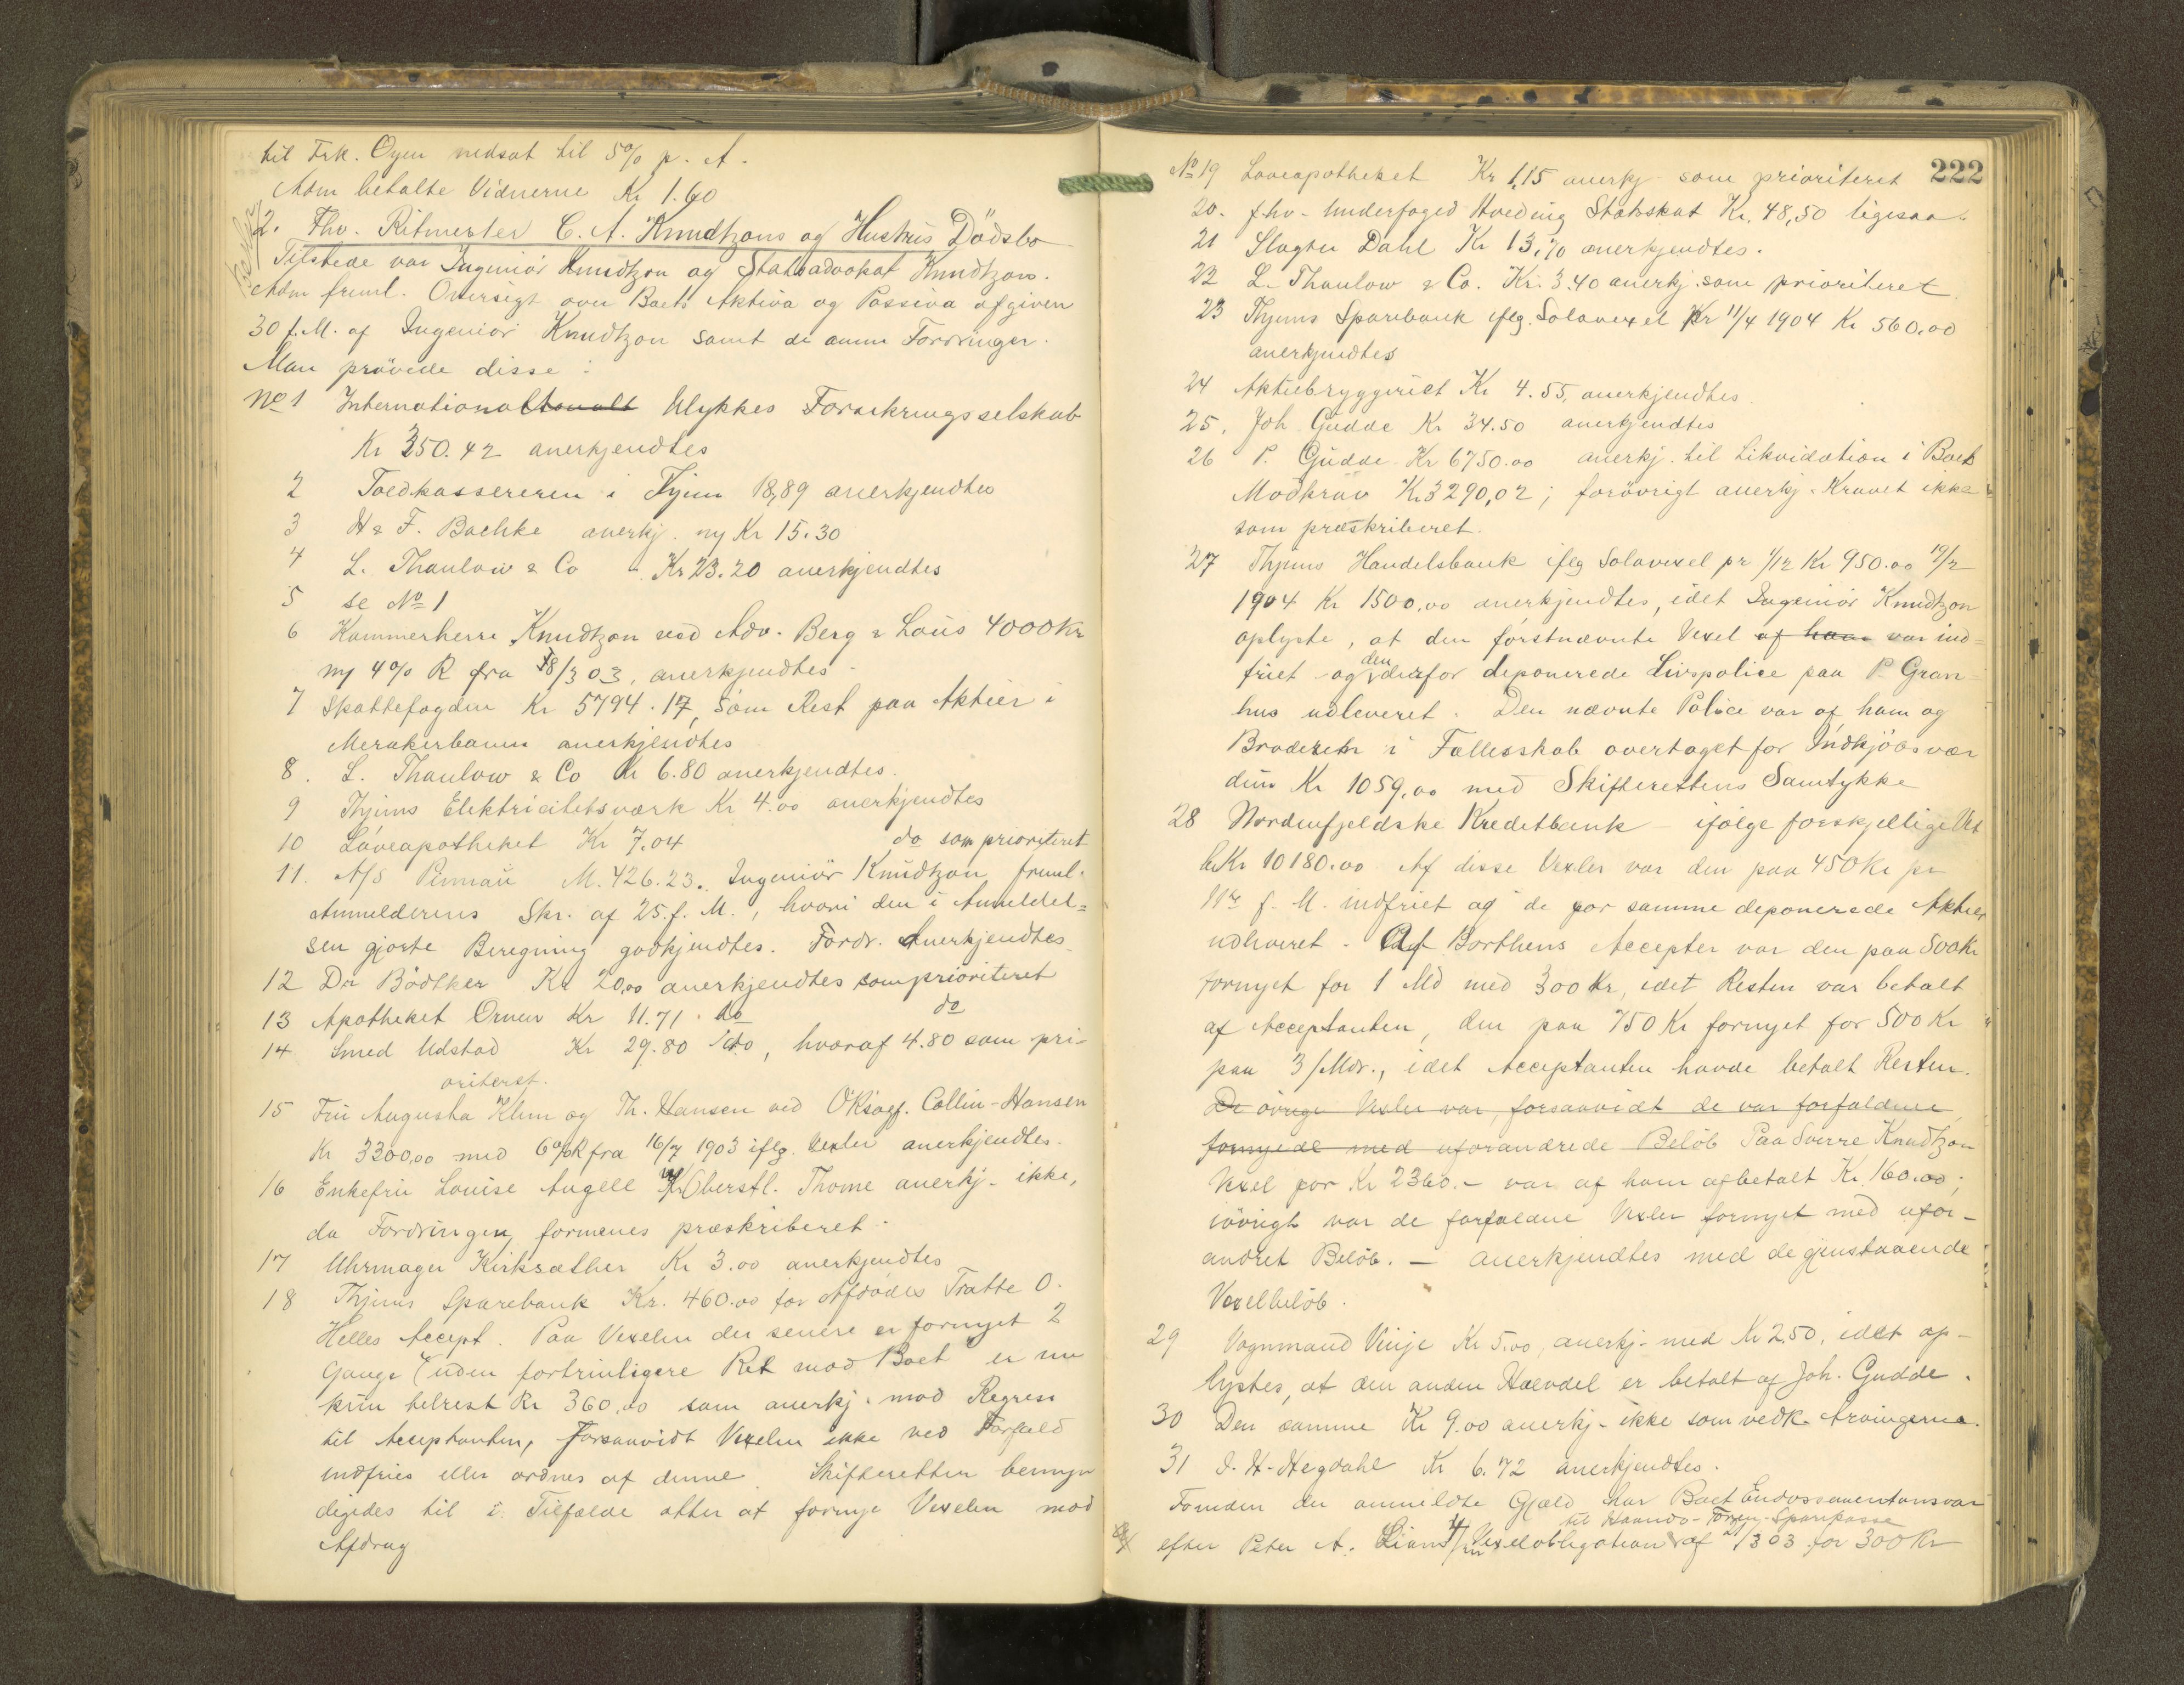 til Frk. Oyen nedsat til 5% p. A.
Adm betalte Vidnerne Kr 1.60
2. Fhv. Ritmester C. A. Knudtzons og Hustrus Dödsbo
Tilstede var Ingeniör Knudtzon og Statsadvokat Knudtzon.
Adm freml. Oversigt over Boets Aktiva og Passiva afgiven
30 f. M. af Ingeniör Knudtzon samt de anm Fordringer.
Man prövede disse:
No 1 Internationalt Ulykkes Forsikringsselskab
Kr 350.42 anerkjendtes
2 Toldkassereren i Thjem 18,89 anerkjendtes
3 H & F. Bachke anerkj. ny Kr 15.30
4 L. Thaulow & Co Kr 23.20 anerkjendtes
5 se No 1
6 Kammerherre Knudtzon ved Adv. Berg & Lous 4000 Kr
m/ 4% R fra 18/3 03, anerkjendtes
7 Skattefogden Kr 5794.17, som Rest paa Aktier i
Merakerbanen anerkjendtes
8. L. Thaulow & Co Kr 6.80 anerkjendtes.
9 Thjems Elektricitetsværk Kr 4.00 anerkjendtes
10 Löveapotheket Kr 7.04 do som prioriteret
11. A/S Pinnau M. 426.23. Ingeniör Knudtzon freml.
Anmelderens Skr. af 25. f. M., hvori den i Anmeldel=
sen gjorte Beregning godkjendtes. Fordr. Anerkjendtes
12 Dr Bödtker Kr 20,00 anerkjendtes som prioriteret
13 Apotheket Ornen Kr 11.71. do do
14 Smed Udstad Kr 29.80 do, hvoraf 4.80 som pri-
oriteret.
15 Fru Augusta Klem og Th. Hansen ved OKsagf. Collin-Hansen
Kr 3300,00 med 6% R fra 16/7 1903 iflg. Vexler anerkjendtes.
16 Enkefru Louise Angell v/ Oberstl. Thome anerkj. ikke,
da Fordringen formenes præskriberet.
17 Uhrmager Kirksæther Kr 3.00 anerkjendtes
18 Thjems Sparebank Kr. 460.00 for Afdödes Tratte O.
Helles Accept. Paa Vexelen der senere er fornyet 2
Gange (uden fortrinligere Ret mod Boet er nu
kun tilrest Kr 360,00 som anerkj. mod Regress
til Acceptanten, forsaavidt Vexelen ikke ved Forfald
indfries eller ordnes af denne. Skifteretten bemyn
digedes til i Tilfælde atter at fornye Vexelen mod
Afdrag
222
No 19 Löveapotheket Kr 1,15 anerkj. som prioriteret
20. fhv. Underfoged Hveding Statsskat Kr. 48,50 ligesaa.
21 Slagter Dahl Kr 13,70 anerkjendtes.
22 L. Thaulow & Co. Kr. 3.40 anerkj. som prioriteret
23 Thjems Sparebank iflg. Solavexel pr 11/4 1904 Kr 560.00
anerkjendtes
24 Aktiebryggeriet Kr 4.55, anerkjendtes.
25. Joh Gudde Kr 34.50 anerkjendtes
26 P. Gudde Kr 6750.00 anerkj. til Likvidation i Boets
Modkrav Kr 3290,02; forövrigt anerkj. Kravet ikke
som præskriberet.
27 Thjems Handelsbank iflg Solavexel pr 1/12 Kr 950.00 19/2
1904 Kr 1500,00 anerkjendtes, idet Ingeniör Knudtzon
oplyste, at den förstnævnte Vexel af ham var ind=
friet og den derfor deponerede Livspolice paa P. Gran-
hus udleveret. Den nævnte Police var af ham og
Broderen i Fællesskab overtaget for Indkjöbsvær
dien Kr 1059,00 med Skifterettens Samtykke
28 Nordenfjeldske Kreditbank - ifölge forskjellige
Kr 10180.00. Af disse Vexler var den paa 450 Kr pr
f. M. indfriet og de for samme deponerede Aktier
udleveret. Af Borthens Accepter var den paa 500 Kr
fornyet for 1 Md med 300 Kr, idet Resten var betalt
af Acceptanten, den paa 750 Kr fornyet for 500 Kr
paa 3 Mdr., idet Acceptanten havde betalt Resten.
De övrige Vexler var, forsaavidt de var forfaldene
fornyede med uforandrede Belöb Paa Sverre Knudtzon
Vexel for Kr 2360.- var af ham afbetalt Kr. 160.00;
iövrigt var de forfaldne Vexler fornyet med ufor-
andret Belöb. - Anerkjendtes med de gjenstaaende
Vexelbelöb.
29 Vognmand Vinje Kr 5.00, anerkj. med Kr 2,50, idet op-
lystes, at den anden Halvdel er betalt af Joh. Gudde.
30 Den samme Kr 9.00 anerkj. ikke som vedk. Arvingerne.
31 I. H. Hegdahl Kr 6.72 anerkjendtes.
Foruden den anmeldte Gjæld har Boet Endossementansvar
til Sparekasse
efter Peter A. Vexelobligation af /3 03 for 300 Kr